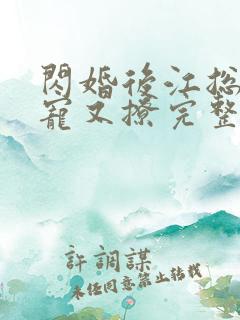 閃婚後江总
寵又撩完整
許調謀
未经同意禁止转载